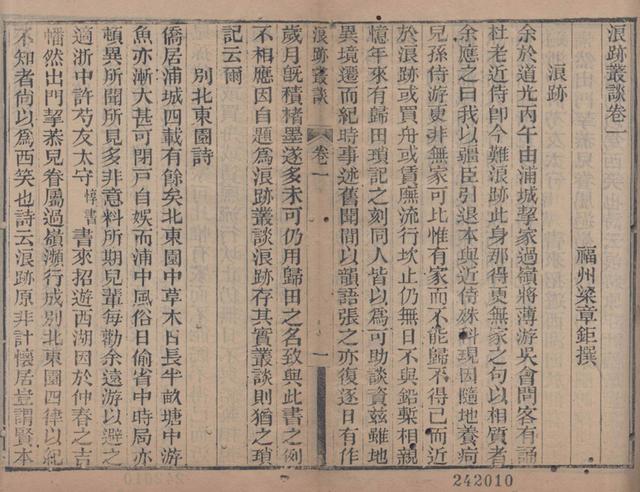 浪跡叢談卷一
福州梁章鉅撰
浪跡
余於道光丙午由浦城挈家過嶺將薄游吳會問客有誦
杜老近侍即今難浪跡此身那得更無家之句以相質者
余應之曰我以疆臣引退本與近侍殊科現因隨地養疴
兒孫侍游更非無家可比惟有家而不能歸不得已而近
於浪跡或買舟或賃廡流行坎止仍無日不與鉛槧相親
憶年來有歸田瑣記之刻同人皆以為可助談資茲雖地
異境遷而紀時事述舊聞間以韻語張之亦復逐日有作
浪跡叢談
卷一
一
歲月旣積楮墨遂多未可仍用歸田之名致與此書之例
不相應因自題為浪跡叢談浪跡存其實叢談則猶之瑣
記云爾
別北東園詩
僑居浦城四載有餘矣北東園中草木日長半畝塘中游
魚亦漸大甚可閉戶自娛而浦中風俗日偷省中時局亦
頓異所聞所見多非意料所期兒輩每勸余遠游以避之
適浙中許芍友太守惇書書來招遊西湖因於仲春之吉
幡然出門挈恭兒眷屬過嶺瀕行成別北東園四律以紀
不知者尚以為西笑也詩云浪跡原非計懷居豈謂賢本
242010